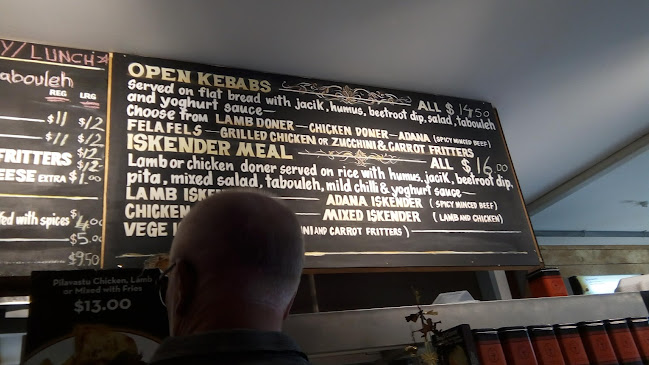 Y/LUNCH
abouleh
REG LRG
$11 $12
$11 $12
FRITTERS $12
EESE EXTRA $1.00
ed with spices $4.00
$5.00
$9.50
OPEN KEBABS ALL $14.50
Served on flat bread with jacik, humus, beetroot dip, salad, tabouleh
and yoghurt sauce
Choose from LAMB DONER — CHICKEN DONER — ADANA (SPICY MINCED BEEF)
FELAFELS — GRILLED CHICKEN OR ZUCCHINI & CARROT FRITTERS
ISKENDER MEAL ALL $16.00
Lamb or chicken doner served on rice with humus, jacik, beetroot dip,
pita, mixed salad, tabouleh, mild chilli & yoghurt sauce
LAMB ISKE ADANA ISKENDER (SPICY MINCED BEEF)
CHICKEN MIXED ISKENDER (LAMB AND CHICKEN)
VEGE INI AND CARROT FRITTERS)
Pilavustu Chicken, Lamb
or Mixed with Fries
$13.00